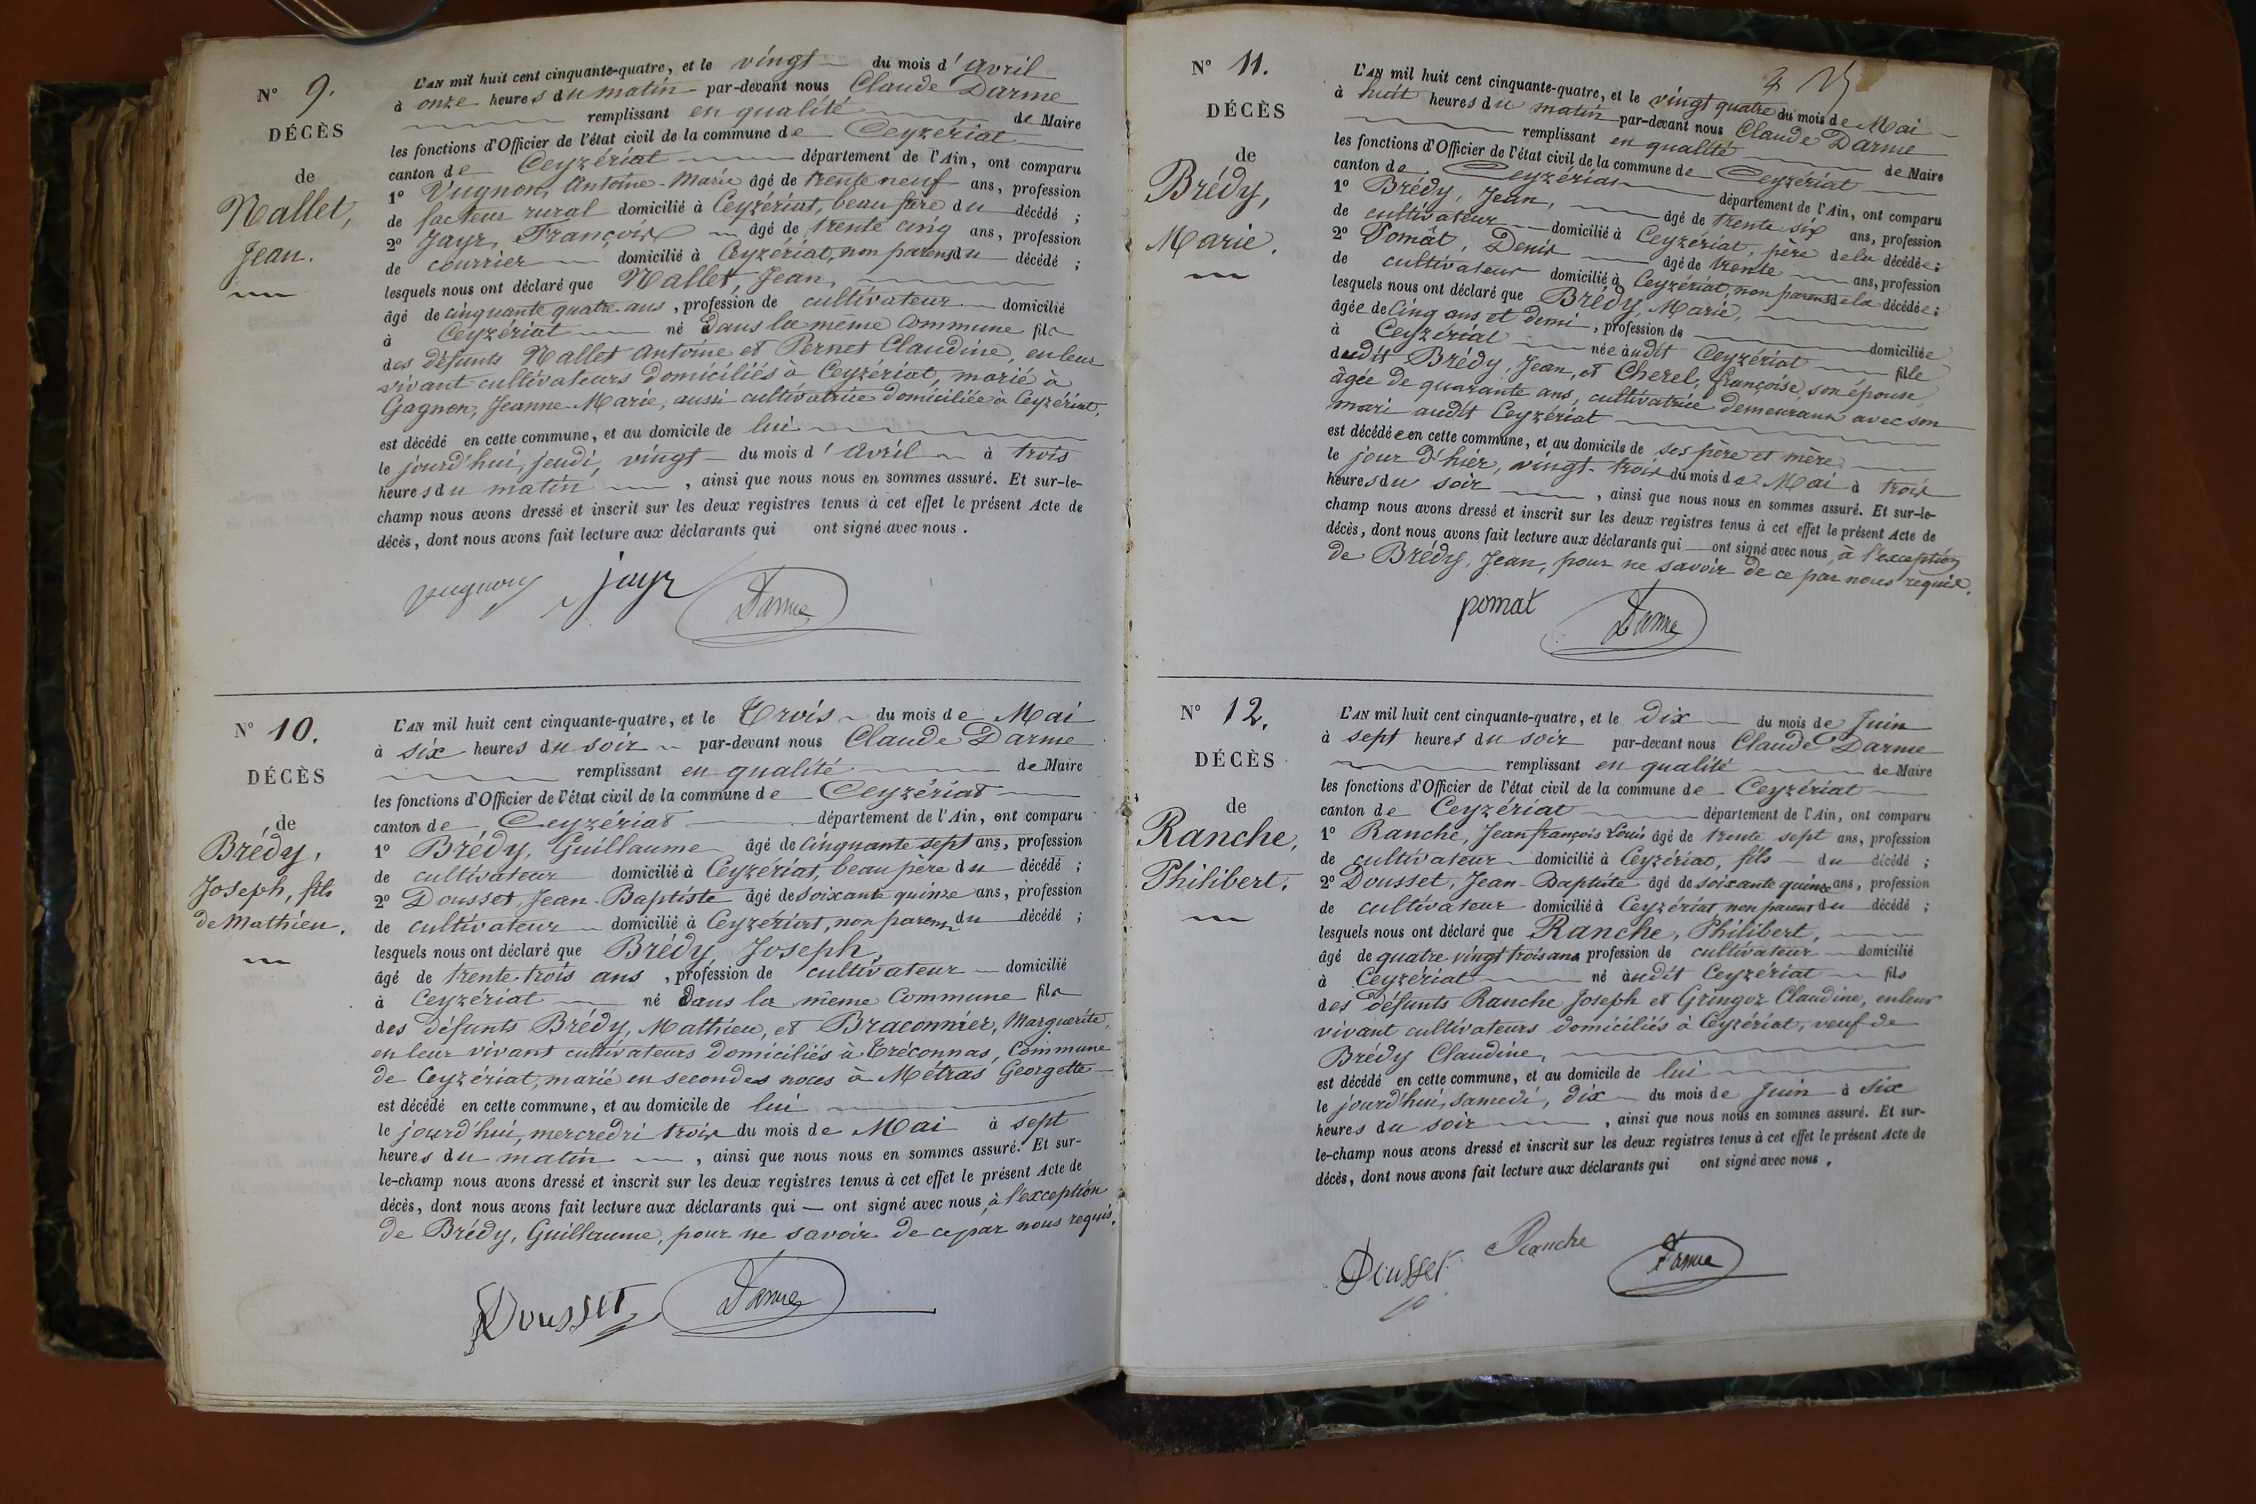 N° 9.
DÉCÈS
de
Nallet,
Jean.
L'AN mil huit cent cinquante-quatre, et le vingt du mois d'avril
à onze heures du matin par-devant nous Claude Darme
remplissant en qualité de Maire
les fonctions d'Officier de l'état civil de la commune de Ceyzériat
canton de Ceyzériat département de l'Ain, ont comparu
1° Vugnon, Antoine-Marie âgé de trente neuf ans, profession
de facteur rural domicilié à Ceyzériat, beau frère du décédé ;
2° Jayr, François âgé de trente cinq ans, profession
de courrier domicilié à Ceyzériat, non parent du décédé ;
lesquels nous ont déclaré que Nallet, Jean,
âgé de cinquante quatre ans, profession de cultivateur domicilié
à Ceyzériat né dans la même Commune fils
des défunts Nallet Antoine et Pernet Claudine, en leur
vivant cultivateurs domiciliés à Ceyzériat, marié à
Gagnon, Jeanne-Marie, aussi cultivatrice domiciliée à Ceyzériat,
est décédé en cette commune, et au domicile de lui
le jourd'hui, jeudi, vingt du mois d'avril à trois
heures du matin, ainsi que nous nous en sommes assuré. Et sur-le-
champ nous avons dressé et inscrit sur les deux registres tenus à cet effet le présent Acte de
décès, dont nous avons fait lecture aux déclarants qui ont signé avec nous.
Vugnon jayr Darme
N° 10.
DÉCÈS
de
Brédy,
Joseph, fils
de Mathieu.
L'AN mil huit cent cinquante-quatre, et le Trois du mois de Mai
à six heures du soir par-devant nous Claude Darme
remplissant en qualité de Maire
les fonctions d'Officier de l'état civil de la commune de Ceyzériat
canton de Ceyzériat département de l'Ain, ont comparu
1° Brédy, Guillaume âgé de cinquante sept ans, profession
de cultivateur domicilié à Ceyzériat, beau père du décédé ;
2° Dousset, Jean-Baptiste âgé de soixante quinze ans, profession
de cultivateur domicilié à Ceyzériat, non parent du décédé ;
lesquels nous ont déclaré que Brédy Joseph,
âgé de trente-trois ans, profession de cultivateur domicilié
à Ceyzériat né dans la même Commune fils
des défunts Brédy, Mathieu, et Braconnier, Marguerite,
en leur vivant cultivateurs domiciliés à Tréconnas, Commune
de Ceyzériat, marié en secondes noces à Métras Georgette
est décédé en cette commune, et au domicile de lui
le jourd'hui, mercredri trois du mois de Mai à sept
heures du matin, ainsi que nous nous en sommes assuré. Et sur-
le-champ nous avons dressé et inscrit sur les deux registres tenus à cet effet le présent Acte de
décès, dont nous avons fait lecture aux déclarants qui — ont signé avec nous, à l'exception
de Brédy, Guillaume, pour ne savoir de ce par nous requis.
Dousset Darme
N° 11.
DÉCÈS
de
Brédy,
Marie.
L'AN mil huit cent cinquante-quatre, et le vingt quatre du mois de Mai
à huit heures du matin par-devant nous Claude Darme
remplissant en qualité de Maire
les fonctions d'Officier de l'état civil de la commune de Ceyzériat
canton de Ceyzériat département de l'Ain, ont comparu
1° Brédy, Jean, âgé de trente six ans, profession
de cultivateur domicilié à Ceyzériat, père de la décédée ;
2° Pomât, Denis âgé de trente ans, profession
de cultivateur domicilié à Ceyzériat, non parent de la décédée ;
lesquels nous ont déclaré que Brédy, Marie,
âgée de Cinq ans et demi, profession de domiciliée
à Ceyzériat née audit Ceyzériat fille
dudit Brédy, Jean, et Cherel, françoise, son épouse,
âgée de quarante ans, cultivatrice demeurant avec son
mari audit Ceyzériat
est décédée en cette commune, et au domicile de ses père et mère
le jour d'hier, vingt-trois du mois de Mai à trois
heures du soir, ainsi que nous nous en sommes assuré. Et sur-le-
champ nous avons dressé et inscrit sur les deux registres tenus à cet effet le présent Acte de
décès, dont nous avons fait lecture aux déclarants qui — ont signé avec nous, à l'exception
de Brédy, Jean, pour ne savoir de ce par nous requis.
pomat Darme
N° 12.
DÉCÈS
de
Ranche,
Philibert.
L'AN mil huit cent cinquante-quatre, et le dix du mois de Juin
à sept heures du soir par-devant nous Claude Darme
remplissant en qualité de Maire
les fonctions d'Officier de l'état civil de la commune de Ceyzériat
canton de Ceyzériat département de l'Ain, ont comparu
1° Ranche, Jean françois Louis âgé de trente sept ans, profession
de cultivateur domicilié à Ceyzériat, fils du décédé ;
2° Dousset, Jean-Baptiste âgé de soixante quinze ans, profession
de cultivateur domicilié à Ceyzériat non parent du décédé ;
lesquels nous ont déclaré que Ranche, Philibert,
âgé de quatre vingt trois ans profession de cultivateur domicilié
à Ceyzériat né audit Ceyzériat fils
des défunts Ranche Joseph et Gringoz Claudine, en leur
vivant cultivateurs domiciliés à Ceyzériat, veuf de
Brédy Claudine,
est décédé en cette commune, et au domicile de lui
le jourd'hui, samedi, dix du mois de Juin à six
heures du soir, ainsi que nous nous en sommes assuré. Et sur-
le-champ nous avons dressé et inscrit sur les deux registres tenus à cet effet le présent Acte de
décès, dont nous avons fait lecture aux déclarants qui ont signé avec nous.
Dousset Ranche Darme